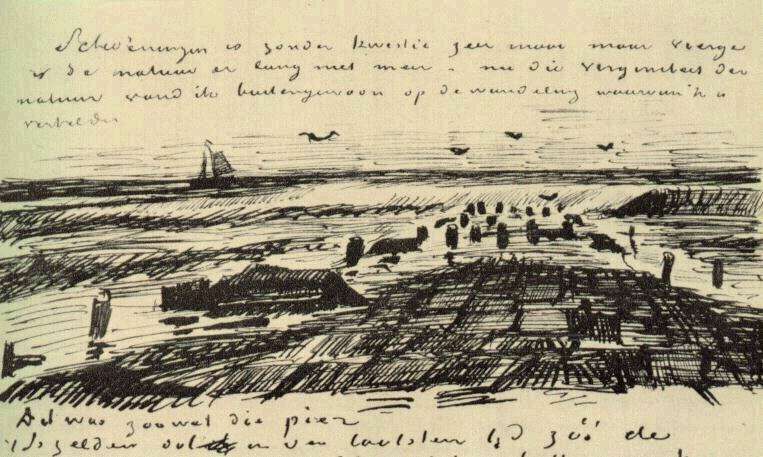 Scheveningen is zonder kwestie zeer mooi maar vierge
is de natuur er lang niet meer - nu die virginiteit der
natuur vond ik buitengewoon op de wandeling waarvan ik u
vertelde
Dit was zoowat die pier
zelden de laatsten tijd zóó de